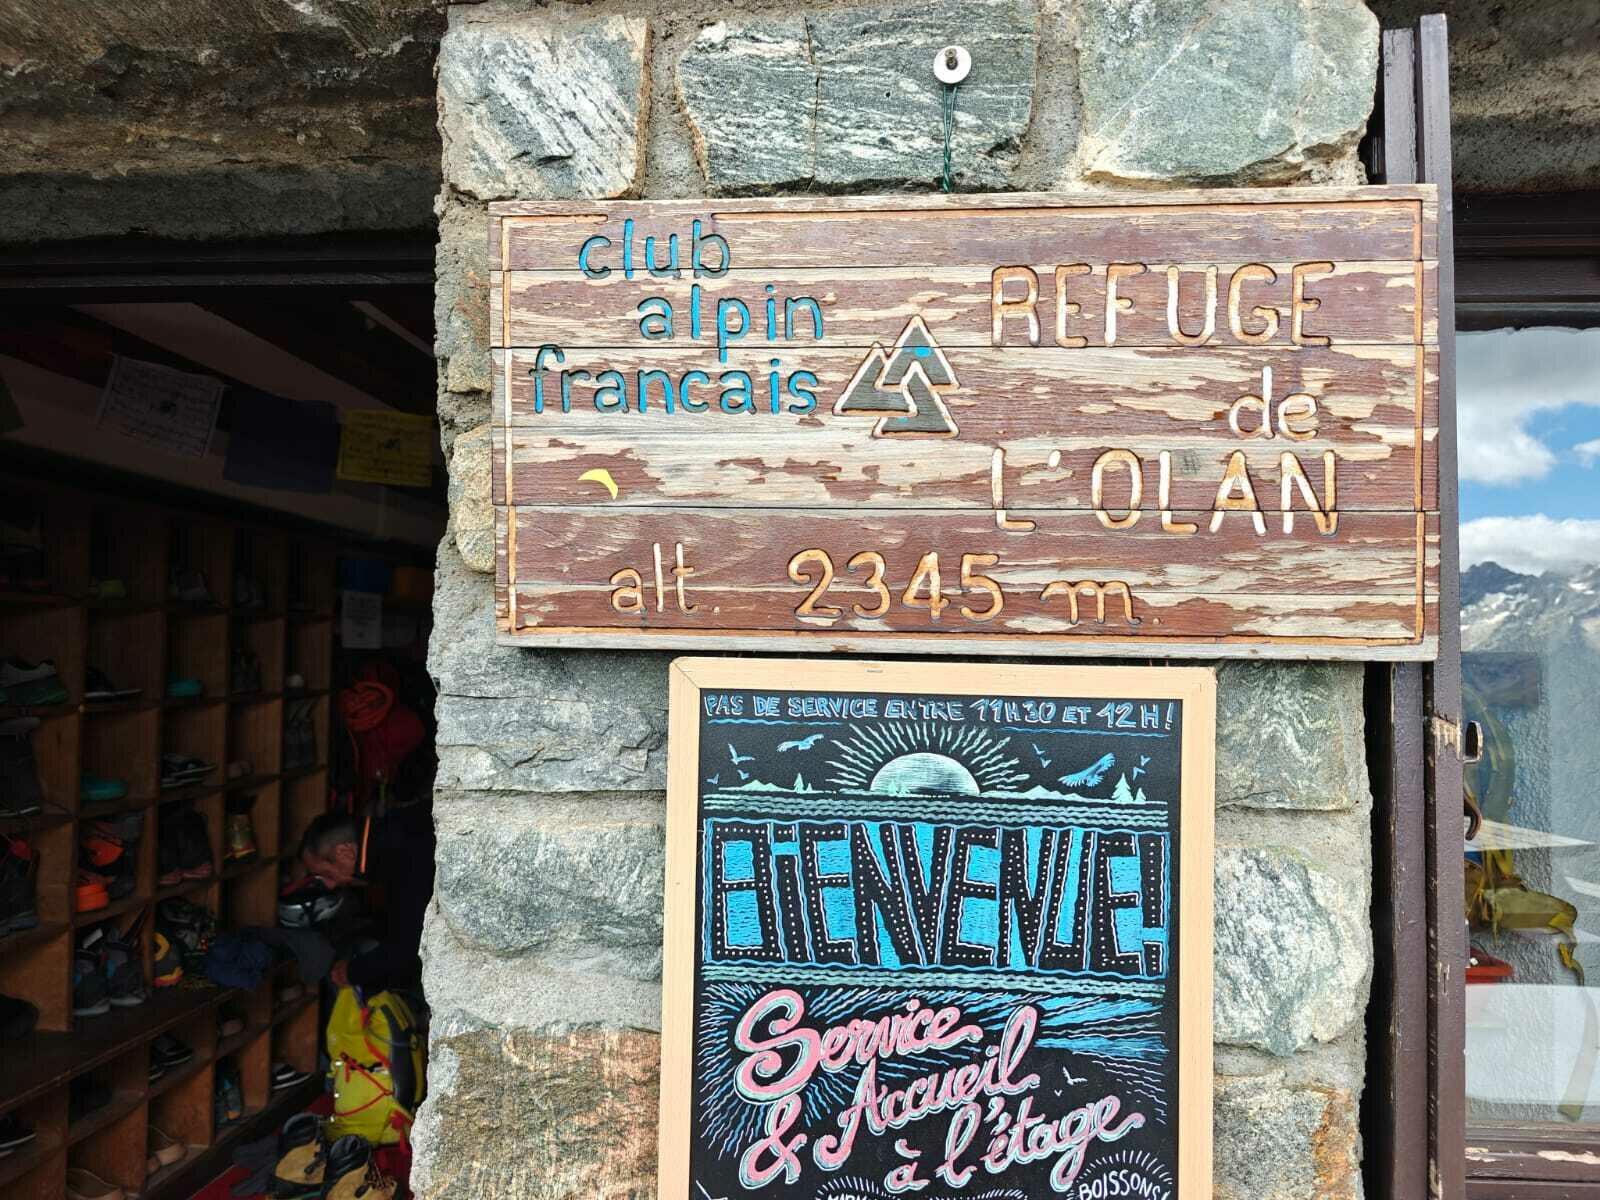 club
alpin
francais
REFUGE
de
L'OLAN
alt. 2345 m.
PAS DE SERVICE ENTRE 11H30 ET 12H!
BIENVENUE!
Service
& Accueil
à l'étage
BOISSONS